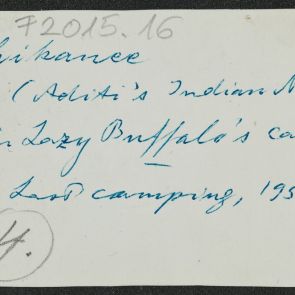 72015.16
hikanee
(Aditi's Indian N
in Lazy Buffalo's ca
Last camping, 195
4.